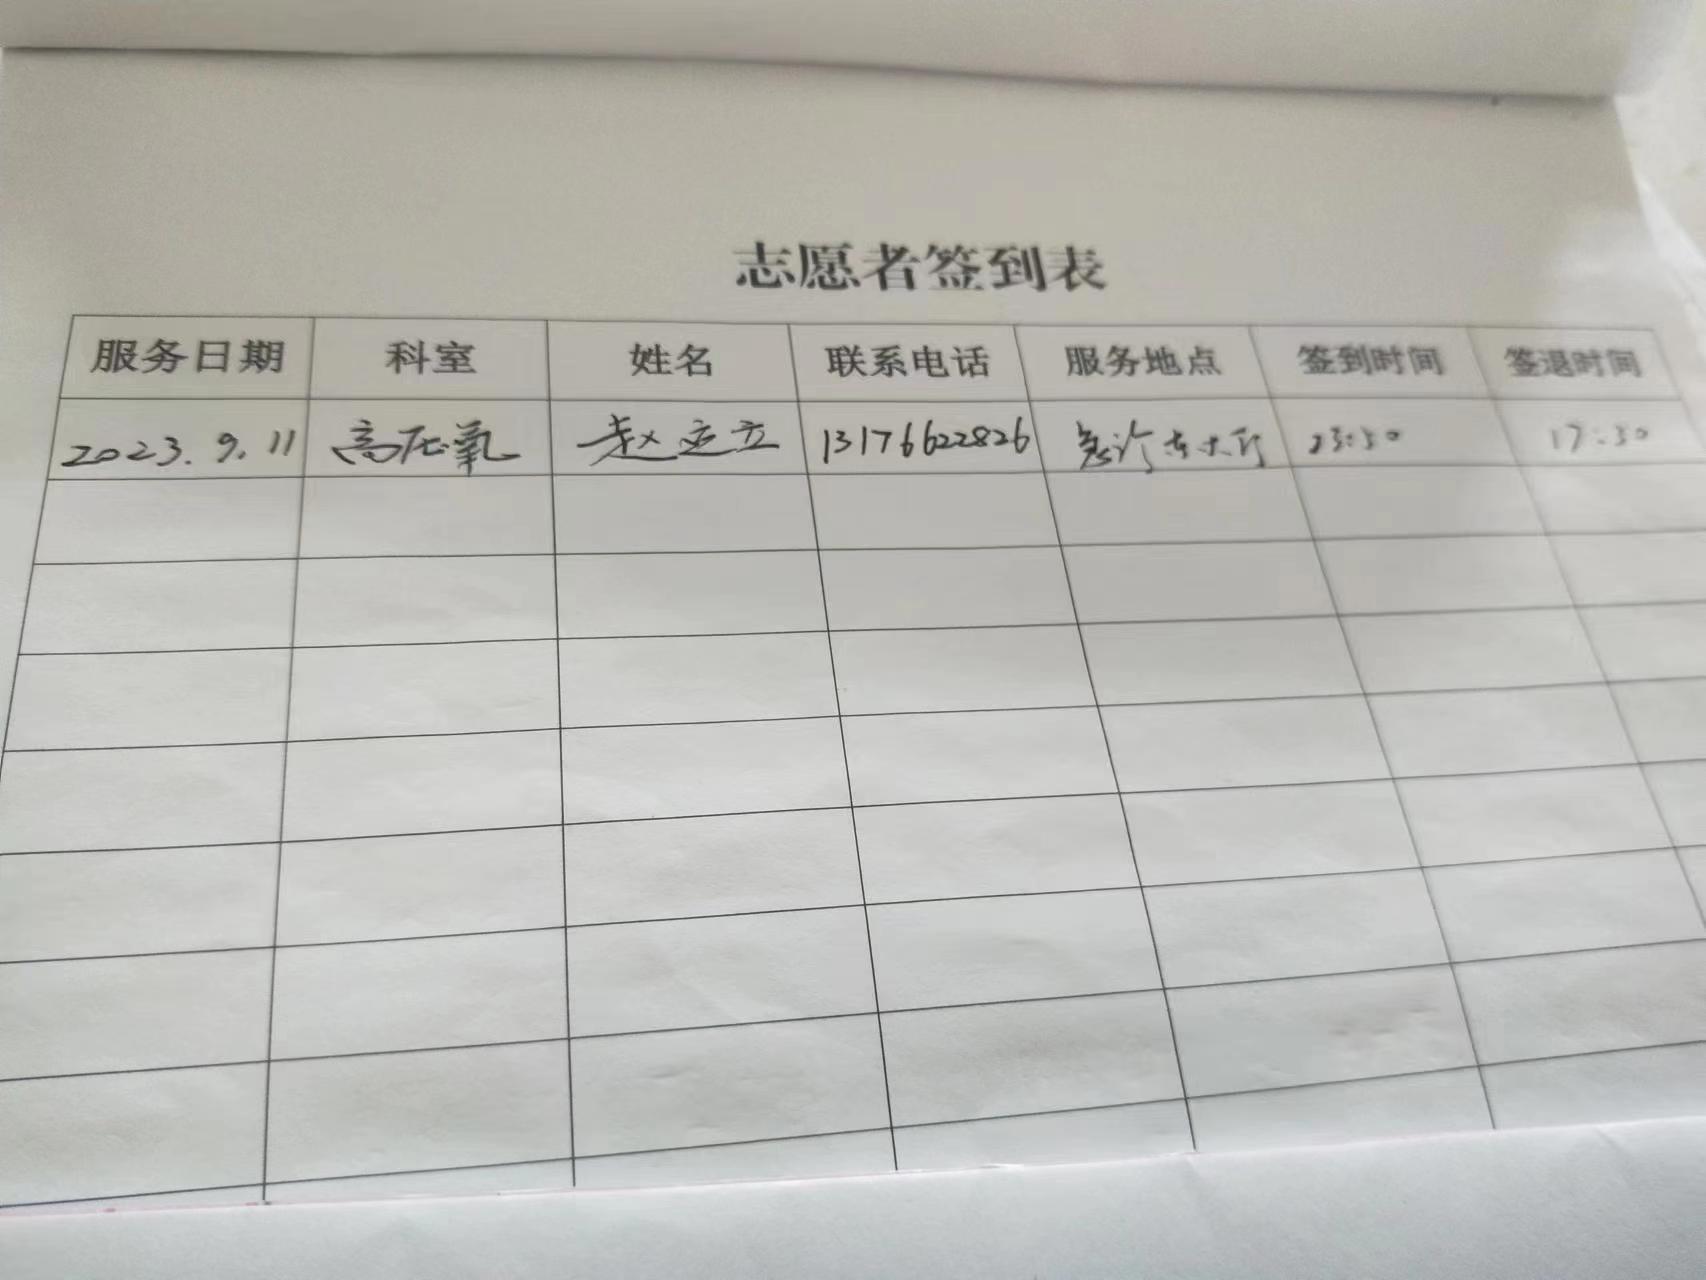 志愿者签到表
服务日期 科室 姓名 联系电话 服务地点 签到时间 签退时间
2023.9.11 高压氧 赵立 13176622826 急诊东大厅 :30 17:30